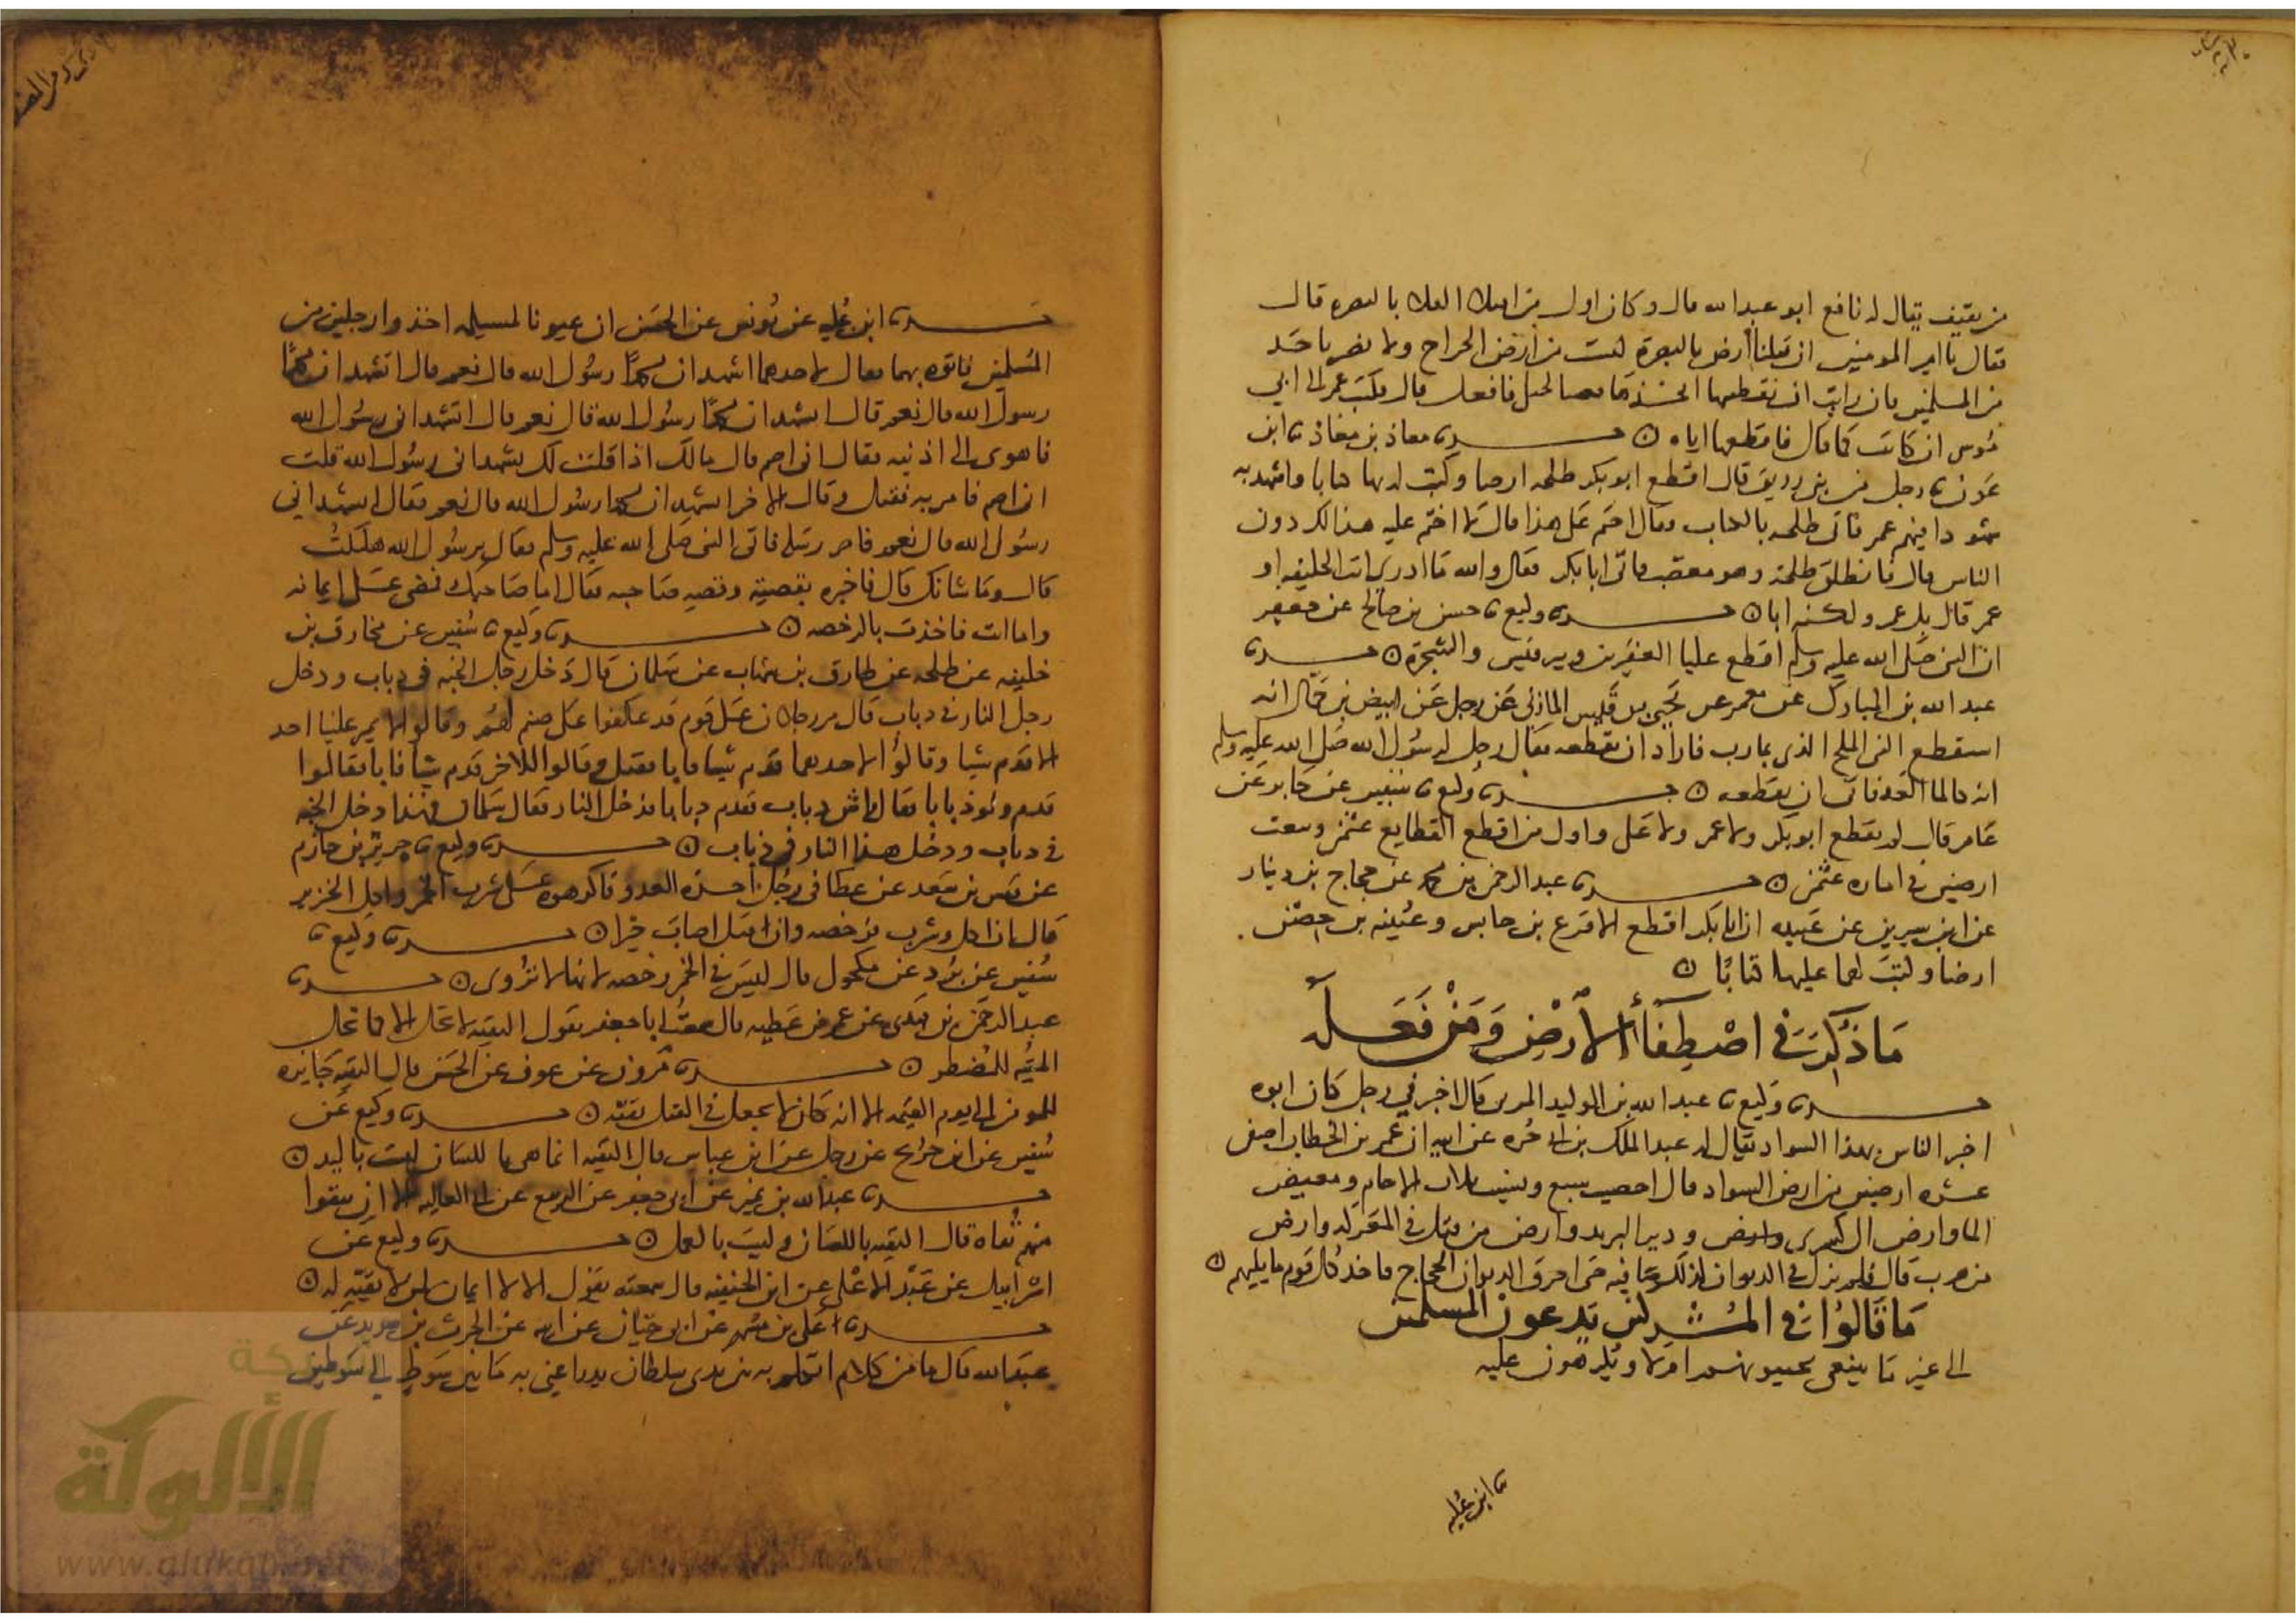 من ثقيف يقال له نافع ابو عبد الله قال وكان اول من افتلا الفلا بالبصره قال
فقال يا امير المومنين ان قبلنا أرض بالبصرة ليست من ارض الخراج ولا تضر باحد
من المسلمين فان رايت ان تقطعنيها اتخذها قضبا لخيلي فافعل قال فكتب عمر الى ابي
موسى ان كانت كما قال فاقطعها اياه ○ حدثنا معاذ بن معاذ ثنا ابن
عون ثنا رجل من بني زريق قال اقطع ابو بكر طلحه ارضا وكتب له بها كتابا واشهد به
شهودا فيهم عمر فاتى طلحه بالكتاب فقال اختم على هذا قال لا اختم عليه هذا لك دون
الناس قال فانطلق طلحة وهو مغضب فاتى ابا بكر فقال والله ما ادري انت الخليفه او
عمر قال بل عمر ولكنه ابا ○ حدثنا وكيع ثنا حسن بن صالح عن جعفر
ان النبي صلى الله عليه وسلم اقطع عليا الفقيرين وبير قيس والشجرة ○ حدثنا
عبد الله بن المبارك عن معمر عن يحيى بن قيس المازني عن رجل عن ابيض بن حمال انه
استقطع النبي الملح الذي بمارب فاراد ان يقطعه فقال رجل لرسول الله صلى الله عليه وسلم
انه كالما العد فابى ان يقطعه ○ حدثنا وكيع ثنا سفين عن جابر عن
عامر قال لم يقطع ابو بكر ولا عمر ولا علي واول من اقطع القطايع عثمن وبيعت
ارضين في اماره عثمن ○ حدثنا عبد الرحمن بن محمد عن حجاج بن دينار
عن ابن سيرين عن عبيده ان ابا بكر اقطع الاقرع بن حابس وعيينه بن حصن
ارضا وكتب لهما عليها كتابا ○
مَا ذُكِرَ في اصْطِفَاءِ الأرْضِ وَمَنْ فَعَلَه
حدثنا وكيع ثنا عبد الله بن الوليد المزني قال اخبرني رجل كان ابوه
اخبر الناس بهذا السواد يقال له عبد الملك بن ابي حره عن ابيه ان عمر بن الخطاب اصفى
عشره ارضين من ارض السواد قال احصيت سبع ونسيت ثلاث الاجام ومغيض
الما وارض ال كسرى ودير البريد وارض من قتل في المعركه وارض
من هرب قال فلم يزل في الديوان كذلك صافيه حتى احرق الديوان الحجاج فاخذ كل قوم ما يليهم ○
مَا قالوُا في المُشركين يَدعون المسلمين
الى غير ما ينبغي يجيبونهم ام لا ويكرهون عليه
ثنا ابن عليه
حدثنا ابن عليه عن يونس عن الحسن ان عيونا لمسيلمه اخذوا رجلين من
المسلمين فاتوه بهما فقال لاحدهما اتشهد ان محمدا رسول الله قال نعم قال اتشهد ان محمدا
رسول الله قال نعم قال اتشهد ان محمدا رسول الله قال نعم قال اتشهد اني رسول الله
فاهوى الى اذنيه فقال اني اصم قال مالك اذا قلت لك تشهد اني رسول الله قلت
اني اصم فامر به فقتل وقال للاخر اتشهد ان محمدا رسول الله قال نعم فقال اتشهد اني
رسول الله قال نعم فارسله فاتى النبي صلى الله عليه وسلم فقال يرسول الله هلكت
قال وما شانك قال فاخبره بقصته وقصه صاحبه فقال اما صاحبك فمضى على ايمانه
واما انت فاخذت بالرخصه ○ حدثنا وكيع ثنا سفين عن مخارق بن
خليفه عن طارق بن شهاب عن سلمان قال دخل رجل الجنه في دباب ودخل
رجل النار في دباب قال مر رجلان على قوم قد عكفوا على صنم لهم وقالوا لا يمر علينا احد
الا قدم شيا وقالوا لاحدهما قدم شيا فابا فقتل وقالوا للاخر قدم شيا فابا فقالوا
قدم ولو ذبابا فقال ايش دباب فقدم دبابا فدخل النار فقال سلمان فهذا دخل الجنه
في دباب ودخل هذا النار في ذباب ○ حدثنا وكيع ثنا جرير بن حازم
عن قيس بن سعد عن عطا في رجل اخذه العدو فاكرهوه على شرب الخمر واكل الخنزير
قال ان اكل وشرب فرخصه وان قتل اصاب خيرا ○ حدثنا وكيع ثنا
سفين عن برد عن مكحول قال ليس في الخمر رخصه لانها لا تروى ○ حدثنا
عبد الرحمن بن مهدى عن عمر بن عطيه قال سمعت ابا جعفر يقول التقيه لا تحل الا كما تحل
الميته للمضطر ○ حدثنا مرون عن عوف عن الحسن قال التقيه جايزه
للمومن الى يوم القيمه الا انه كان لا يجعل في القتل تقيه ○ حدثنا وكيع عن
سفين عن ابن جريج عن رجل عن ابن عباس قال التقيه انما هي باللسان ليست باليد ○
حدثنا عبد الله بن نمير عن ابي جعفر عن الربيع عن ابي العاليه الا ان تتقوا
منهم تقاه قال التقيه باللسان وليست بالعمل ○ حدثنا وكيع عن
اسرائيل عن عبد الاعلى عن ابن الحنفيه قال سمعته يقول الا لا ايمان لمن لا تقيه له ○
حدثنا علي بن مسهر عن ابي حيان عن ابيه عن الحرث بن سويد عن
عبد الله قال ما من كلام اتكلم به بين يدي سلطان يدرا عني به ما بين سوط الى سوطين
الألوكة
www.alukah.net